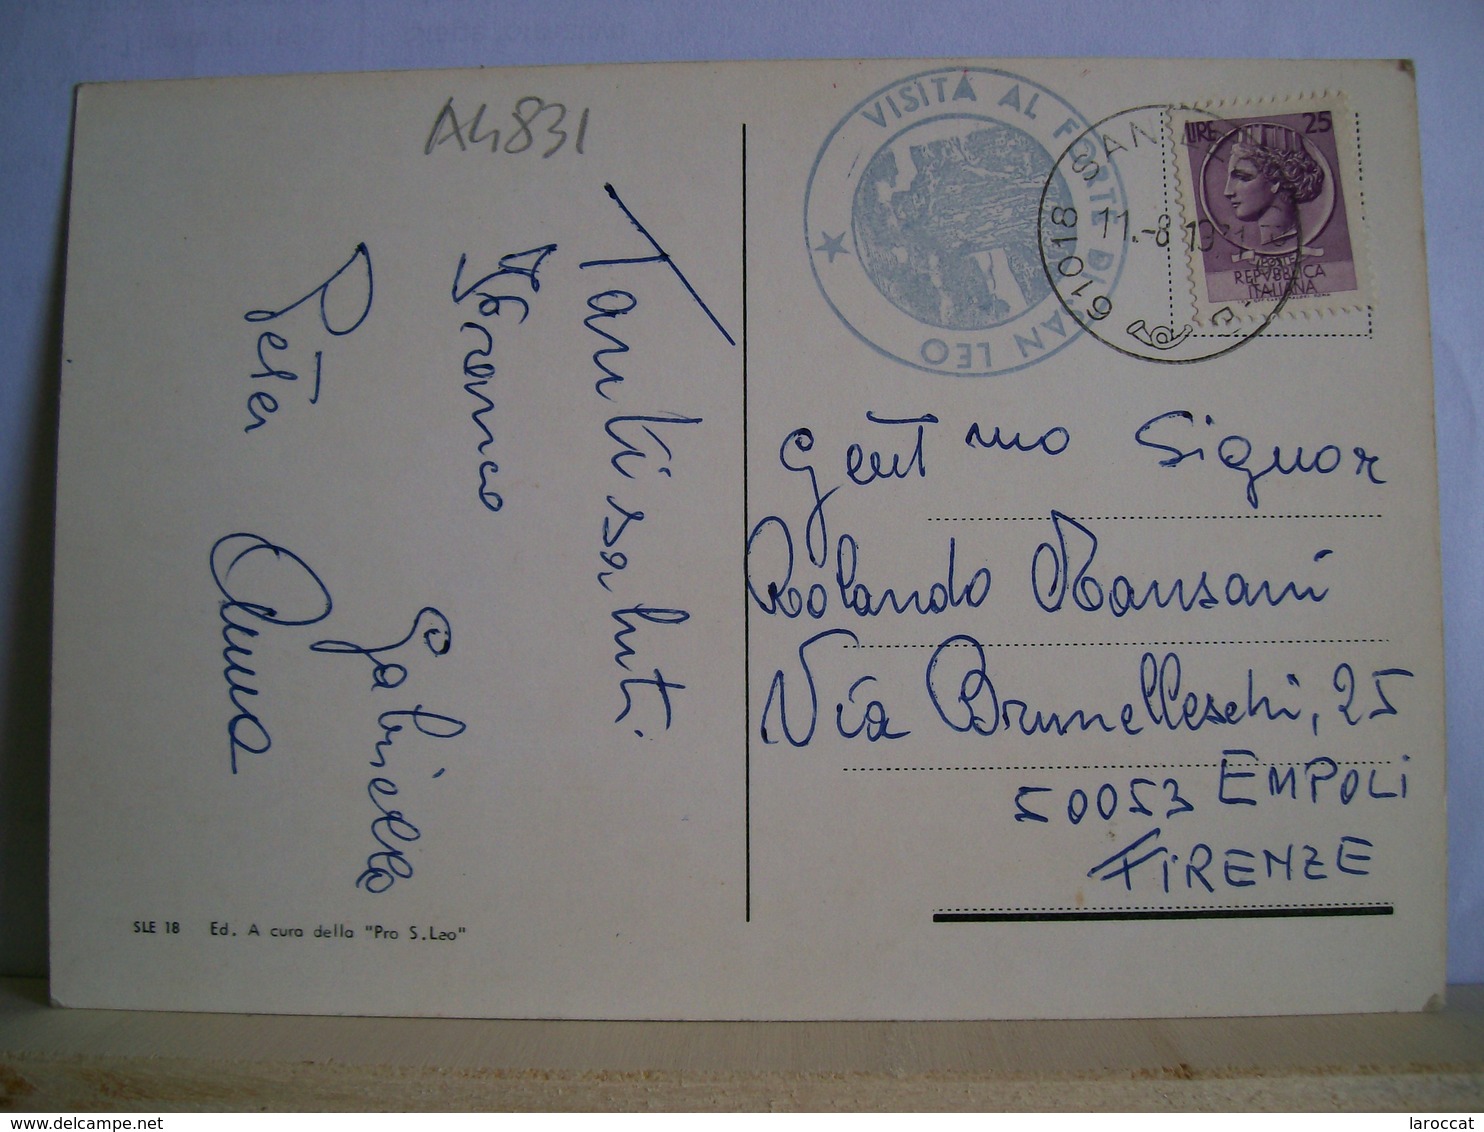 A4831
Tanti saluti
Franco
Gabriella
Peter
Anna
SLE 18 Ed. A cura della "Pro S.Leo"
VISITA AL FORTE DI SAN LEO
61018 SAN LEO
11.-8 1971
LIRE 25
REPVBBLICA
ITALIANA
Gent mo Signor
Rolando Mansani
Via Brunelleschi, 25
50053 EMPOLI
FIRENZE
laroccat